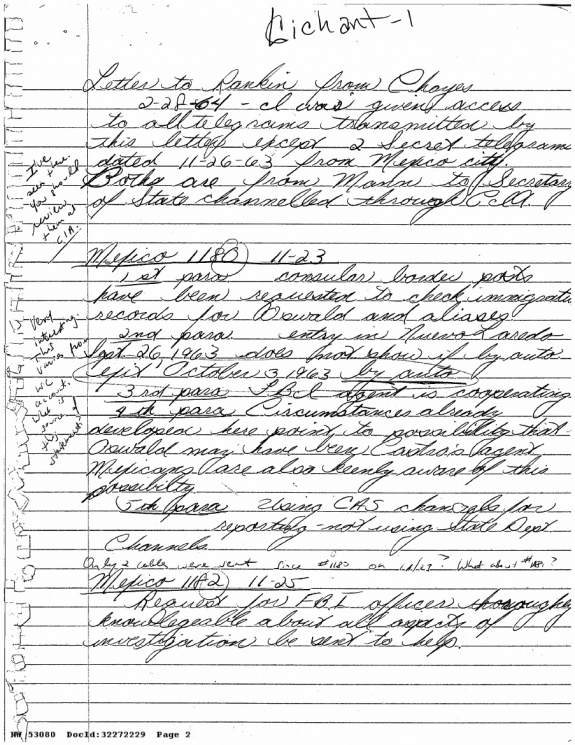 Cichant-1
Letter to Rankin from Chayes
2-28-64 - I was given access
to all telegrams transmitted by
this letter except 2 Secret telegrams
dated 11-26-63 from Mexico city.
Both are from Mann to Secretary
of State channelled through CIA.
I've
seen these
you should
review
them at
CIA.
Mexico 1180 11-23
1st para consular border posts
have been requested to check immigrati
records for Oswald and aliases
2nd para. entry in Nuevo Laredo
Sept. 26, 1963 does not show if by auto
exit October 3, 1963 by auto
3rd para FBI agent is cooperating
4th para Circumstances already
developed here point to possibility that
Oswald may have been Castro's agent,
Mexicans are also keenly aware of this
possibilty
5th para Using CAS channels for
reporting - not using State Dept
Channels.
Very
interesting.
This
varies from
WC
account.
What is
source of
this
statement?
Only 2 cables were sent since #1180 on 11/23? What about #1181?
Mexico 1182 11-25
Request for FBI officer thoroughly
knowlegeable about all aspects of
investigation be sent to help.
NW 53080 DocId:32272229 Page 2